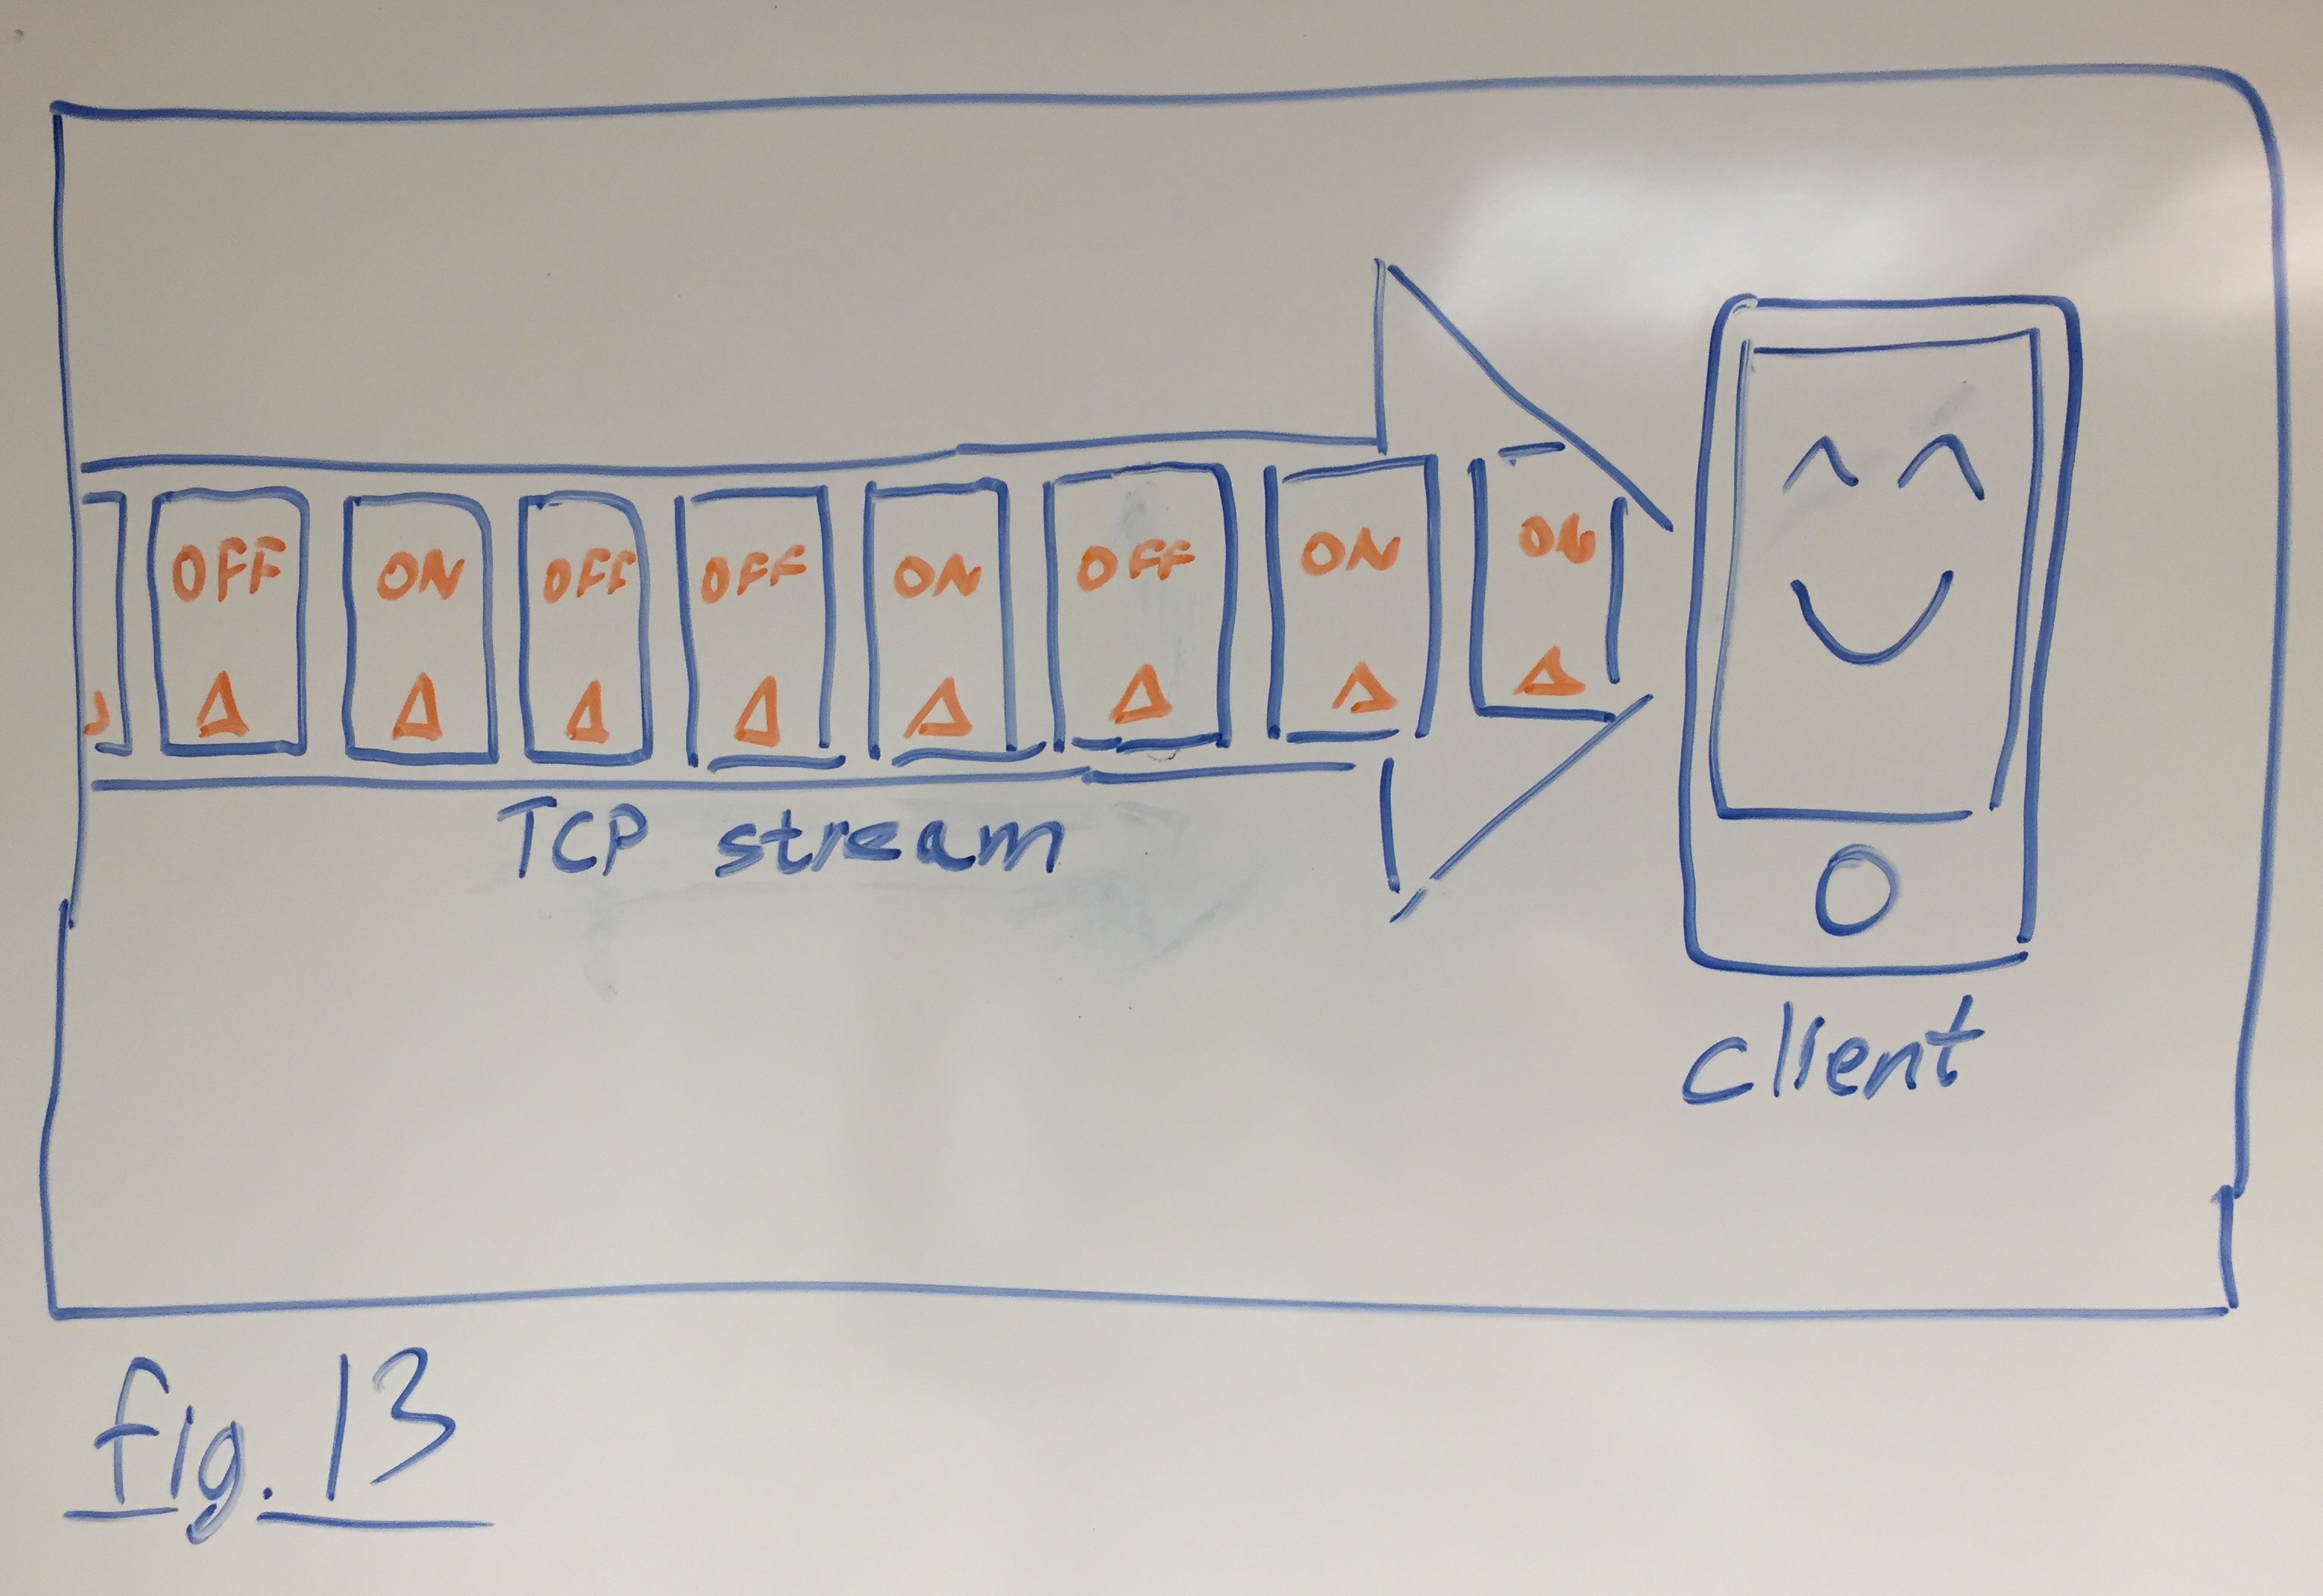 OFF ON OFF OFF ON OFF ON ON
Δ Δ Δ Δ Δ Δ Δ Δ
TCP stream
client
fig. 13